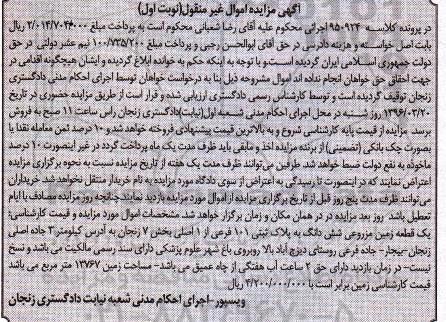 آگهی مزایده اموال غیر منقول(نوبت اول)
در پرونده کلاسه ۹۵۰۹۲۴ اجرائی محکوم علیه آقای رضا شعبانی محکوم است به پرداخت مبلغ ۲/۰۱۴/۷۰۴۰۰۰ ریال
بابت اصل خواسته و هزینه دادرسی در حق آقای ابوالحسن رجبی و پرداخت مبلغ ۱۰۰/۷۳۵/۲۰۰ نیم عشر دولتی در حق
دولت جمهوری اسلامی ایران گردیده است و با توجه به اینکه حکم به خوانده ابلاغ گردیده و ایشان هیچگونه اقدامی در
جهت احقاق حق خواهان انجام نداده اند اموال مشروحه ذیل بنا به درخواست خواهان توسط اجرای احکام مدنی دادگستری
زنجان توقیف گردیده است و توسط کارشناس رسمی دادگستری ارزیابی شده و قرار است از طریق مزایده حضوری در تاریخ
۱۳۹۶/۰۳/۲۰ روز شنبه در محل اجرای احکام مدنی شعبه اول(نیابت)دادگستری زنجان راس ساعت ۱۱ صبح به فروش
برسد. مزایده از قیمت پایه کارشناسی شروع و به بالاترین قیمت پیشنهادی فروخته خواهد شد و ۱۰ درصد ثمن معامله نقدا یا
بصورت چک بانکی(تضمینی) از برنده مزایده اخذ و مابقی باید ظرف مدت یک ماه پرداخت گردد در غیر اینصورت ۱۰ درصد
ماخوذه به نفع دولت ضبط خواهد شد. طرفین می‌توانند ظرف مدت یک هفته از تاریخ مزایده نسبت به نحوه برگزاری مزایده
اعتراض نمایند که در اینصورت تا رسیدگی به اعتراض از سوی دادگاه مورد مزایده به نام خریدار منتقل نخواهد شد. خریداران
می‌توانند ظرف مدت پنج روز قبل از تاریخ برگزاری مزایده از اموال مورد مزایده بازدید نمایند.چنانچه روز مزایده مصادف با ایام
تعطیل باشد روز بعد مزایده در در همان مکان و زمان برگزار خواهد شد. مشخصات اموال مورد مزایده و قیمت کارشناسی:
یک قطعه زمین مزروعی شش دانگ به پلاک ثبتی ۱۰۱ فرعی از ۱ اصلی بخش ۷ زنجان به آدرس کیلومتر۳ جاده اصلی
زنجان-بیجار- جاده فرعی روستای دیزج آباد بالا روبروی باغ شهر علوم پزشکی دارای سند رسمی مالکیت می باشد و نسخ
نیست- در زمان بازدید دارای حق ۲ ساعت آب هفتگی از چاه عمیق می باشد- مساحت زمین ۱۳۷۶۷ متر مربع می باشد
قیمت کارشناسی زمین برابر است با ۴/۷۰۰/۰۰۰/۰۰۰ ریال
ویسپور-اجرای احکام مدنی شعبه نیابت دادگستری زنجان